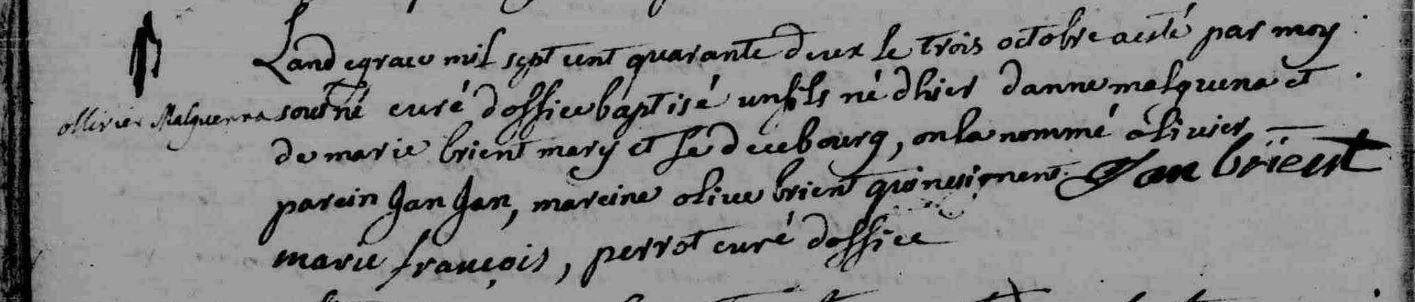 Land egrace mil sept cent quarante deux le trois octobre aesté par moy
ollivier Malquenna
sousné curé doffice baptisé un fils né dhier danne malquena et
de marie brient mary et fe de ce bourg, on la nommé olivier
parein Jan Jan, mareine olive brient qui ne signent. Jan brient
marie françois, perrot curé doffice